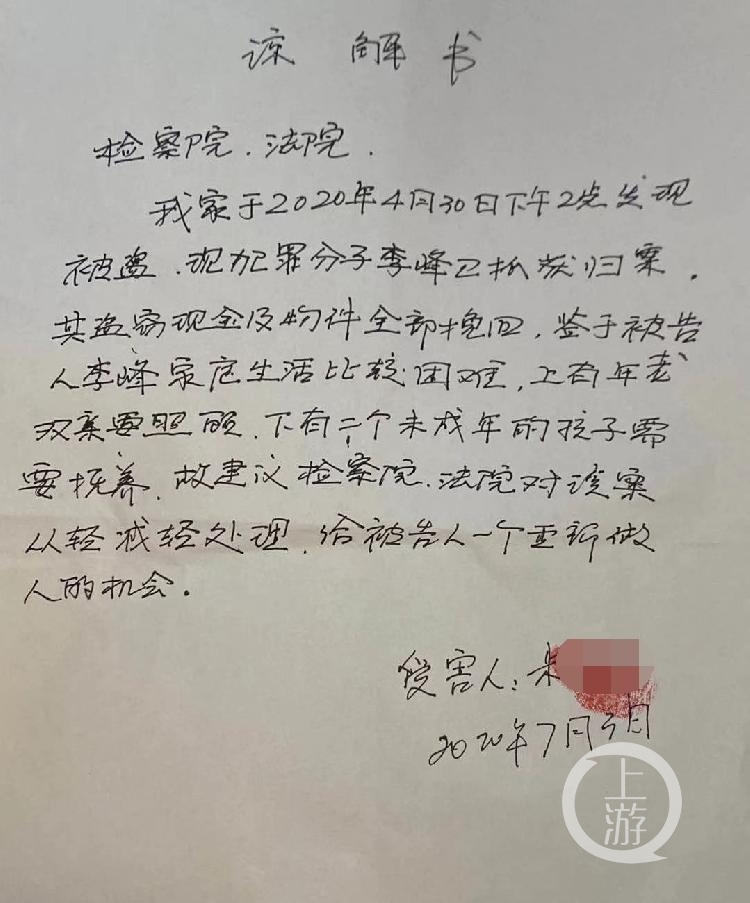 谅解书
检察院、法院、
我家于2020年4月30日下午2点发现
被盗、现犯罪分子李峰已抓获归案,
其盗窃现金及物件全部挽回,鉴于被告
人李峰家庭生活比较困难,上有年老
双亲要照顾、下有二个未成年的孩子需
要抚养,故建议检察院、法院对该案
从轻减轻处理,给被告人一个重新做
人的机会。
受害人:朱
2020年7月5日
上游